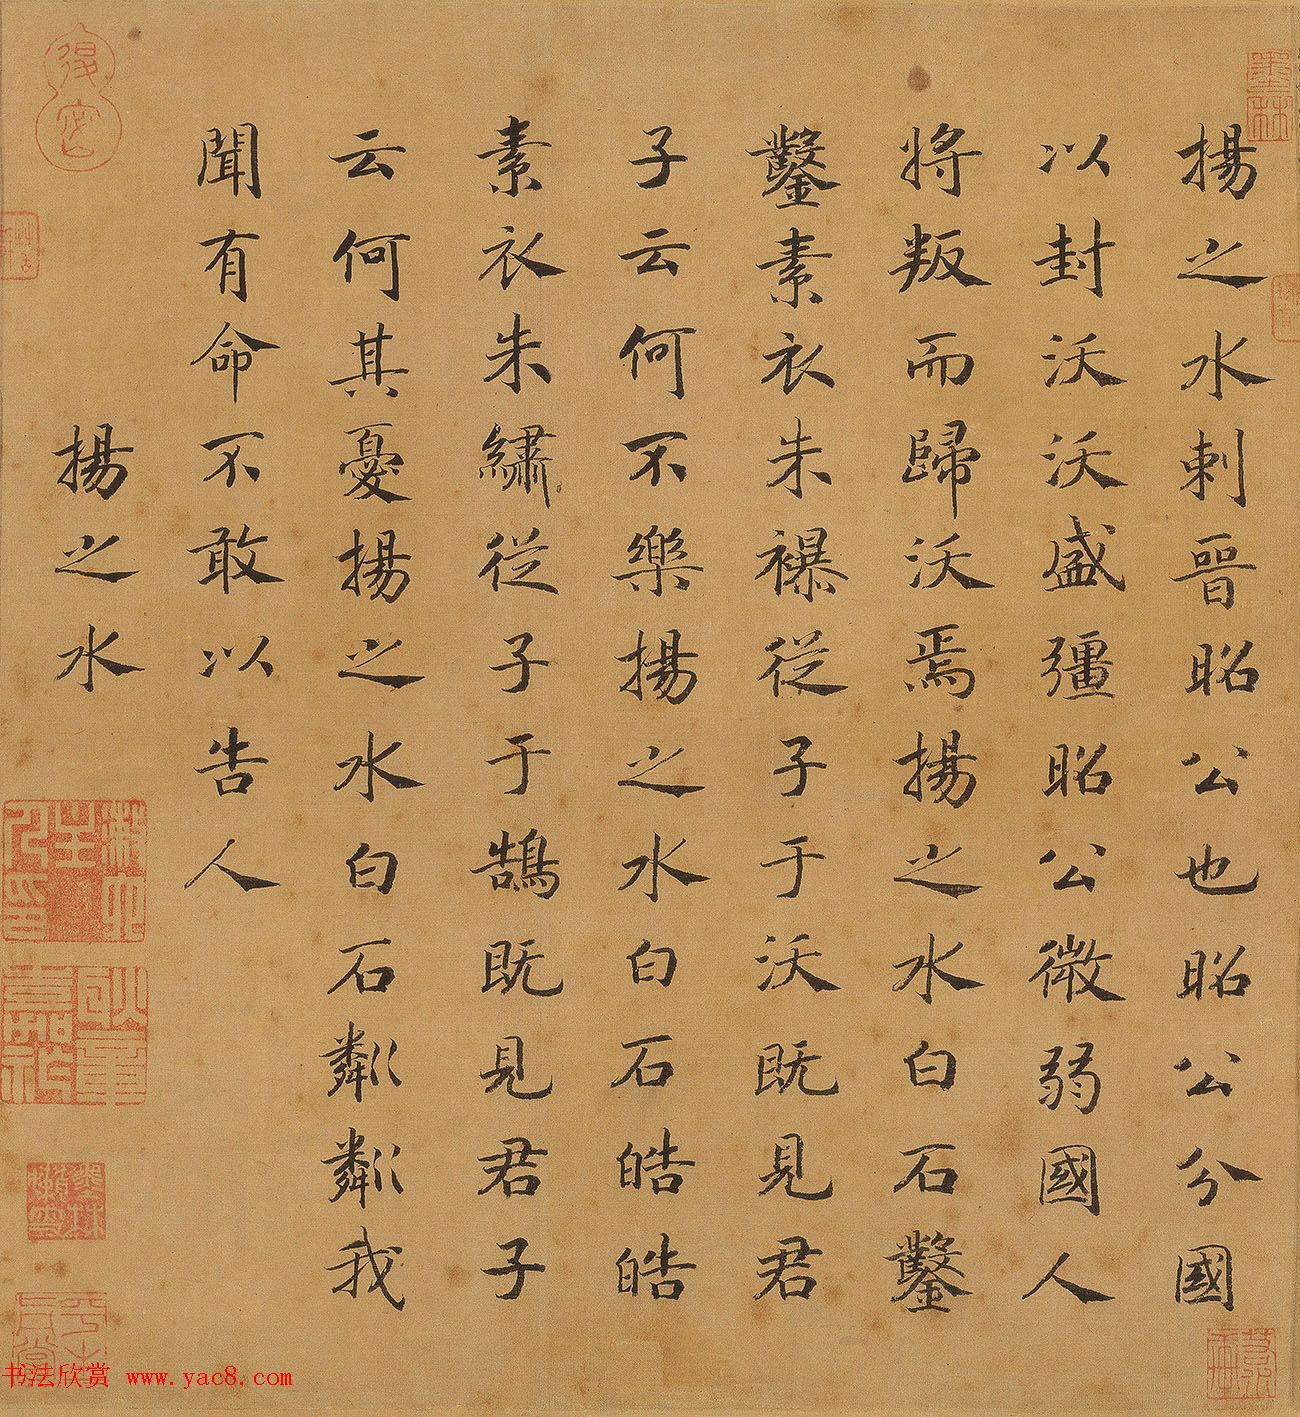 揚之水刺晉昭公也昭公分國
以封沃沃盛彊昭公微弱國人
將叛而歸沃焉揚之水白石鑿
鑿素衣朱襮從子于沃既見君
子云何不樂揚之水白石皓皓
素衣朱繡從子于鵠既見君子
云何其憂揚之水白石粼粼我
聞有命不敢以告人
揚之水
墨林
书法欣赏 www.yac8.com